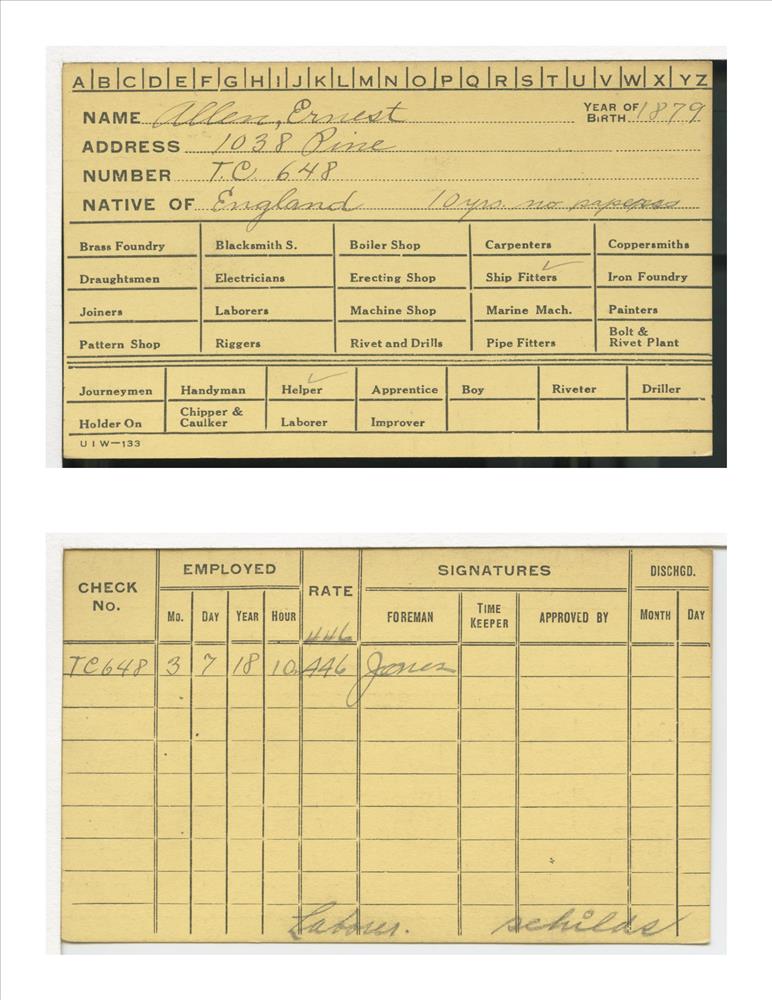 A|B|C|D|E|F|G|H|I|J|K|L|M|N|O|P|Q|R|S|T|U|V|W|X|Y Z
NAME Allen, Ernest YEAR OF BIRTH 1879
ADDRESS 1038 Pine
NUMBER T.C. 648
NATIVE OF England 10 yrs. no papers
Brass Foundry Blacksmith S. Boiler Shop Carpenters Coppersmiths
Draughtsmen Electricians Erecting Shop Ship Fitters ✓ Iron Foundry
Joiners Laborers Machine Shop Marine Mach. Painters
Pattern Shop Riggers Rivet and Drills Pipe Fitters Bolt & Rivet Plant
Journeymen Handyman Helper ✓ Apprentice Boy Riveter Driller
Holder On Chipper & Caulker Laborer Improver
U I W—133
CHECK No. EMPLOYED RATE SIGNATURES DISCHGD.
Mo. DAY YEAR HOUR FOREMAN TIME KEEPER APPROVED BY MONTH DAY
446
TC648 3 7 18 10 446 Jones
Laborer. schilds